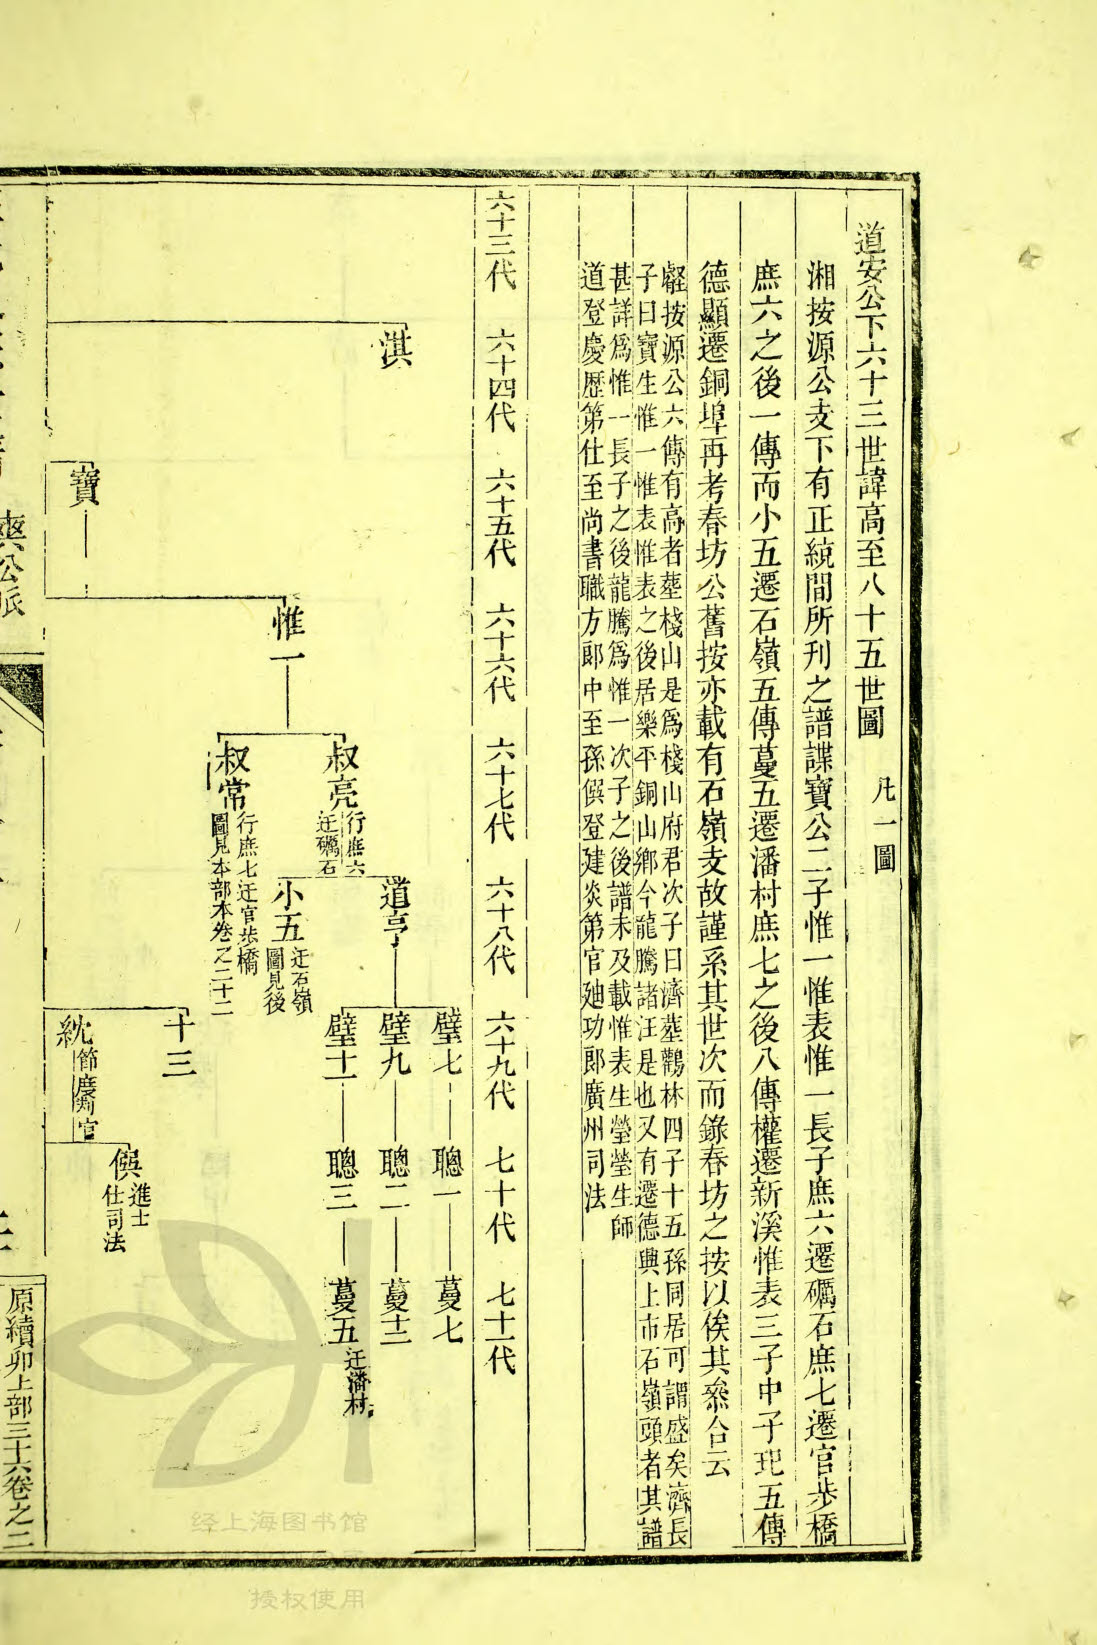 道安公下六十三世諱高至八十五世圖
凡一圖
湘按源公支下有正統間所刋之譜諜寶公二子惟一惟表惟一長子庶六遷礪石庶七遷官步橋
庶六之後一傳而小五遷石嶺五傳蔓五遷潘村庶七之後八傳權遷新溪惟表三子中子玘五傳
德顯遷銅埠再考春坊公舊按亦載有石嶺支故謹系其世次而錄春坊之按以俟其叅合云
叡按源公六傳有高者塟棧山是爲棧山府君次子曰濟塟鸛林四子十五孫同居可謂盛矣濟長
子曰寶生惟一惟表惟表之後居樂平銅山鄉今龍騰諸汪是也又有遷德興上市石嶺頭者其譜
甚詳爲惟一長子之後龍騰爲惟一次子之後譜未及載惟表生瑩瑩生師
道登慶歷第仕至尚書職方郎中至孫俁登建炎第官廸功郎廣州司法
六十三代 六十四代 六十五代 六十六代 六十七代 六十八代 六十九代 七十代 七十一代
璧七 聰一 蔓七
淇
道亨
璧九 聰二 蔓十二
叔亮 行庶六 迁礪石
璧十一 聰三 蔓五 迁潘村
惟一
小五 迁石嶺 圖見後
叔常 行庶七迁官步橋 圖見本部本卷之二十二
十三
俁 進士 仕司法
寶
紞 節度判官
爽公派
原續卯上部三十六卷之二
经上海图书馆
授权使用